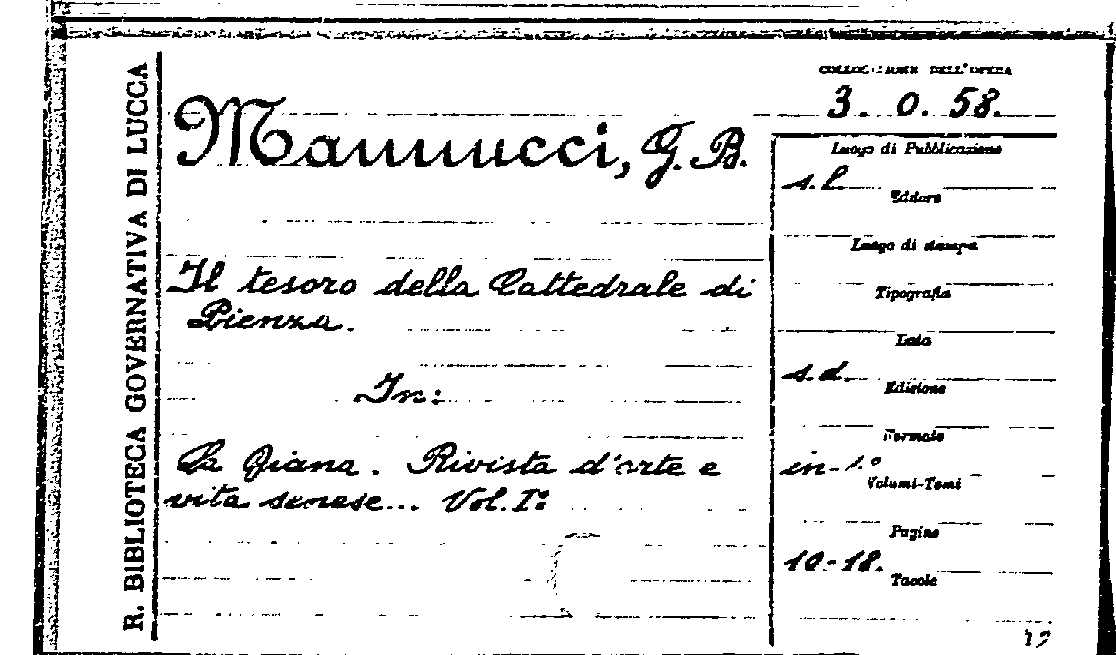 R. BIBLIOTECA GOVERNATIVA DI LUCCA
Mannucci, G. B.
Il tesoro della Cattedrale di
Pienza.
In:
La Diana. Rivista d'arte e
vita senese... Vol. I:
COLLOCAZIONE DELL'OPERA
3. 0. 58.
Luogo di Pubblicazione
s. l.
Editore
Luogo di stampa
Tipografia
Data
s. d.
Edizione
Formato
in-
Volumi-Tomi
Pagine
10-18.
Tavole